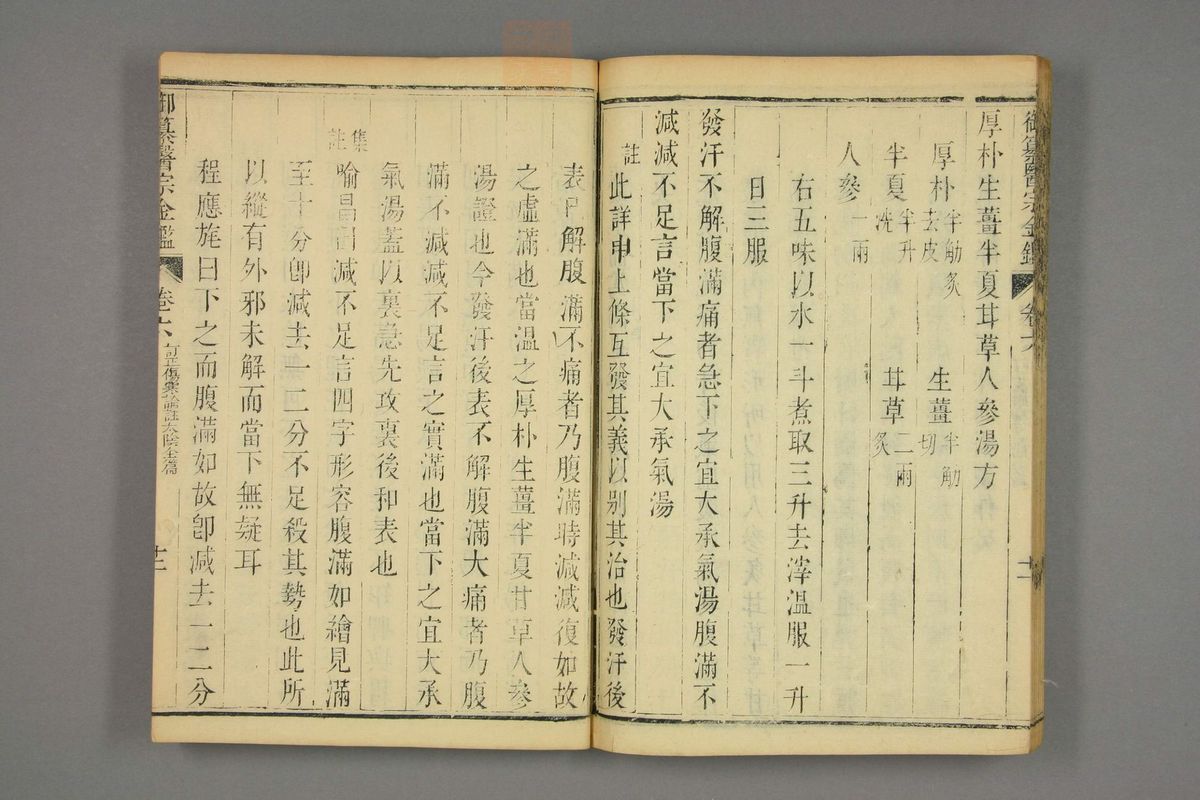 御纂醫宗金鑑 卷六 十二
厚朴生薑半夏甘草人參湯方
厚朴 半觔炙 去皮 生薑 半觔 切
半夏 半升 洗 甘草 二兩 炙
人參 一兩
右五味以水一斗煮取三升去滓溫服一升
日三服
發汗不解腹滿痛者急下之宜大承氣湯腹滿不
減減不足言當下之宜大承氣湯
註 此詳申上條互發其義以别其治也發汗後
表已解腹滿不痛者乃腹滿時減減復如故
之虛滿也當溫之厚朴生薑半夏甘草人參
湯證也今發汗後表不解腹滿大痛者乃腹
滿不減減不足言之實滿也當下之宜大承
氣湯蓋以裏急先攻裏後和表也
集註 喻昌曰減不足言四字形容腹滿如繪見滿
至十分卽減去一二分不足殺其勢也此所
以縱有外邪未解而當下無疑耳
程應旄曰下之而腹滿如故卽減去一二分
御纂醫宗金鑑 卷六 訂正傷寒論註太陰全篇 十三